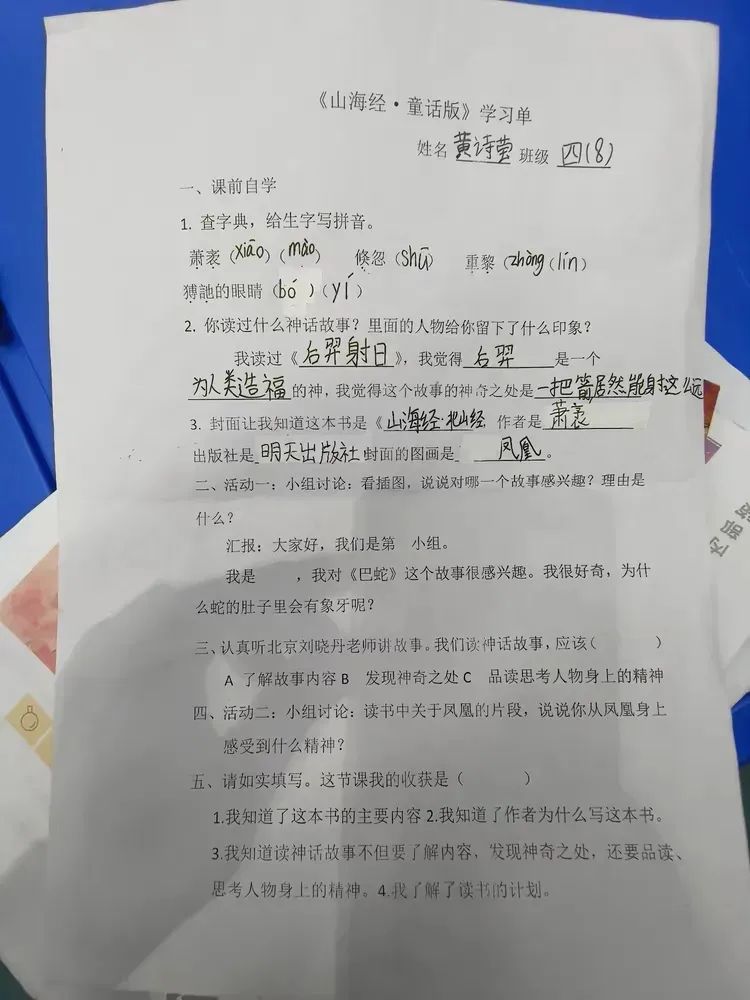 《山海经·童话版》学习单
姓名 黄诗莹 班级 四(8)
一、课前自学
1. 查字典，给生字写拼音。
萧袤（xiāo）（mào） 倏忽（shū） 重黎（zhòng（lín）
猼訑的眼睛（bó）（yí）
2. 你读过什么神话故事？里面的人物给你留下了什么印象？
我读过《后羿射日》，我觉得 后羿 是一个
为人类造福 的神，我觉得这个故事的神奇之处是一把箭居然能射这么远
3. 封面让我知道这本书是《山海经·北山经 作者是 萧袤
出版社是 明天出版社 封面的图画是 凤凰。
二、活动一：小组讨论：看插图，说说对哪一个故事感兴趣？理由是
什么？
汇报：大家好，我们是第 小组。
我是 ，我对《巴蛇》这个故事很感兴趣。我很好奇，为什
么蛇的肚子里会有象牙呢？
三、认真听北京刘晓丹老师讲故事。我们读神话故事，应该（ ）
A 了解故事内容 B 发现神奇之处 C 品读思考人物身上的精神
四、活动二：小组讨论：读书中关于凤凰的片段，说说你从凤凰身上
感受到什么精神？
五、请如实填写。这节课我的收获是（ ）
1.我知道了这本书的主要内容 2.我知道了作者为什么写这本书。
3.我知道读神话故事不但要了解内容，发现神奇之处，还要品读、
思考人物身上的精神。4.我了解了读书的计划。